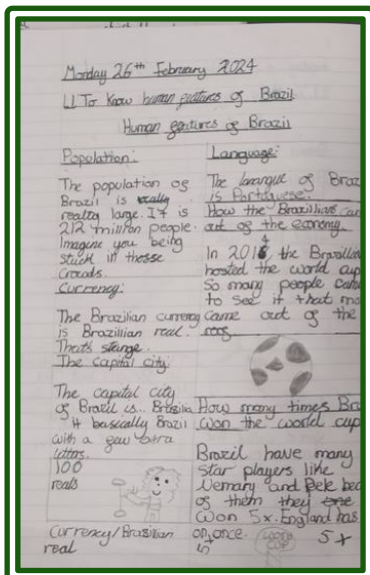 Monday 26th February 2024
LI To Know human features of Brazil
Human features of Brazil
Population:
The population of
Brazil is really
really large. It is
212 million people.
Imagine you being
stuck in those
crowds.
Currency:
The Brazilian currency
is Brazillian real.
That's strange.
The capital city:
The capital city
of Brazil is... Brasilia
It basically Brazil
with a few extra
letters.
100
reals
Currency/Brazilian
real
Language:
The language of Braz
is Portuguese.
How the Brazillians cam
out of the economy.
In 2014, the Brazillian
hosted the world cup
So many people came
to see it that mo
came out of the
How many times Bra
won the world cup
Brazil have many
star players like
Nemary and Pele bec
of them they
won 5x. England has
on once.
5x